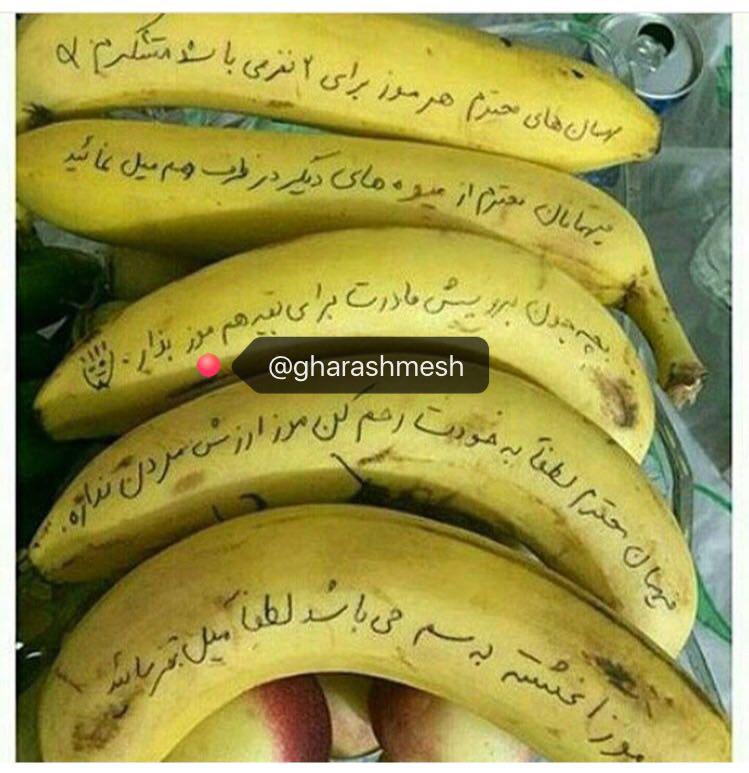 مهمان های محترم هر موز برای ۲ نفر می باشد متشکرم
میهمانان محترم از میوه های دیگر در ظرف هم میل نمائید
بچه جون برو پیش مادرت برای بقیه هم موز بذار.
@gharashmesh
میهمان محترم لطفاً به خودت رحم کن موز ارزش مردن نداره.
موز آغشته به سم می باشد لطفاً میل بفرمائید